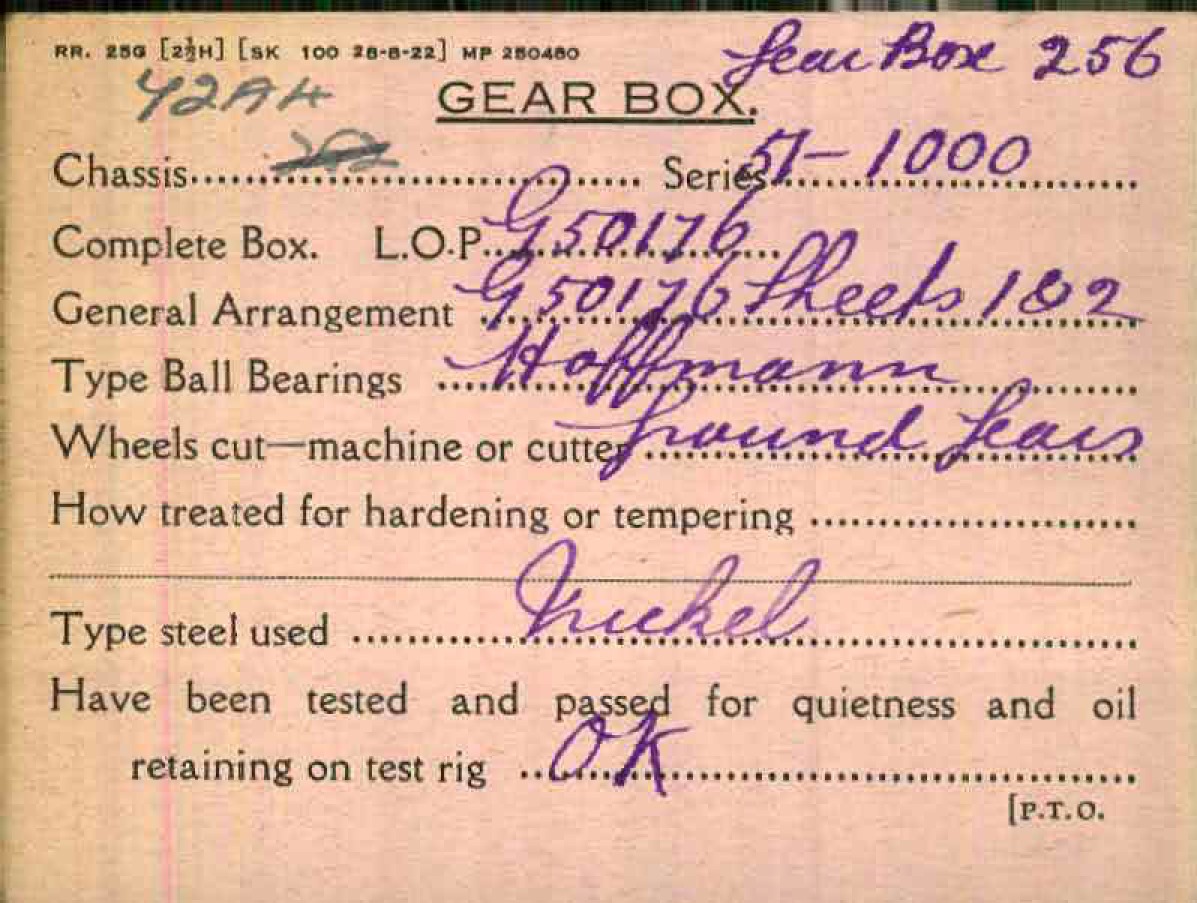 RR. 25G [2½H] [SK 100 28-8-22] MP 280480
Gear Box 256
42AH
GEAR BOX.
Chassis.......... Series 51-1000
Complete Box. L.O.P. G50176
General Arrangement G50176 Sheets 1&2
Type Ball Bearings Hoffmann
Wheels cut—machine or cutter Ground Gears
How treated for hardening or tempering ..........
Type steel used Nickel
Have been tested and passed for quietness and oil
retaining on test rig OK
[P.T.O.